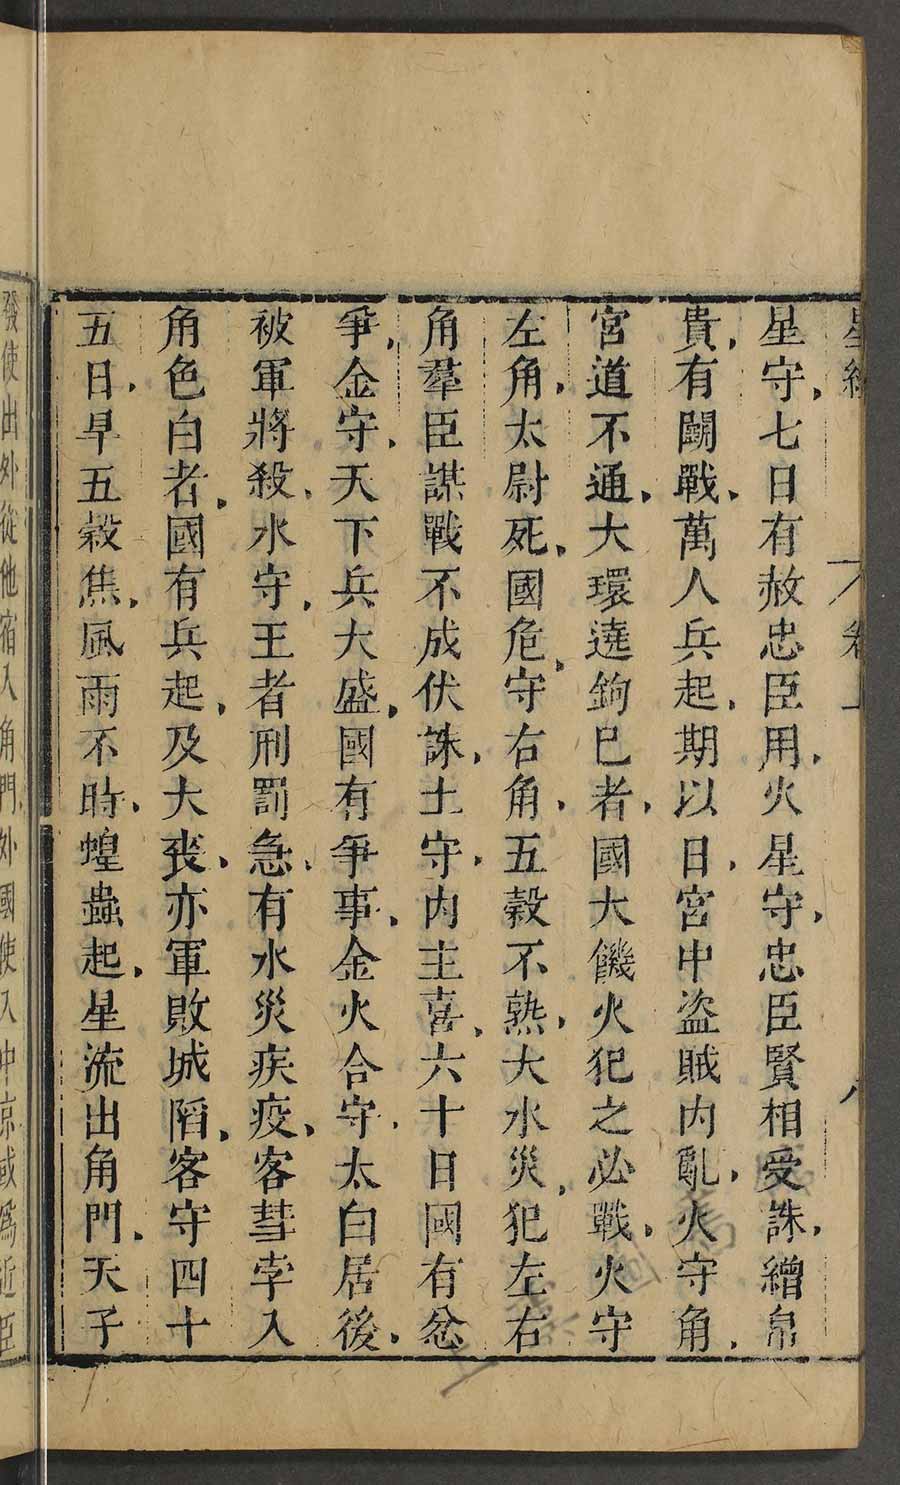 星經
卷上
八
星守七日有赦忠臣用火星守忠臣賢相受誅繒帛
貴有鬭戰萬人兵起期以日宮中盜賊內亂火守角
宮道不通大環遶鉤巳者國大饑火犯之必戰火守
左角太尉死國危守右角五穀不熟大水災犯左右
角羣臣謀戰不成伏誅土守內主喜六十日國有忿
爭金守天下兵大盛國有爭事金火合守太白居後
被軍將殺水守王者刑罰急有水災疾疫客彗孛入
角色白者國有兵起及大喪亦軍敗城陷客守四十
五日旱五穀焦風雨不時蝗蟲起星流出角門天子
發使出外從他宿入角門外國使入中京或爲近臣